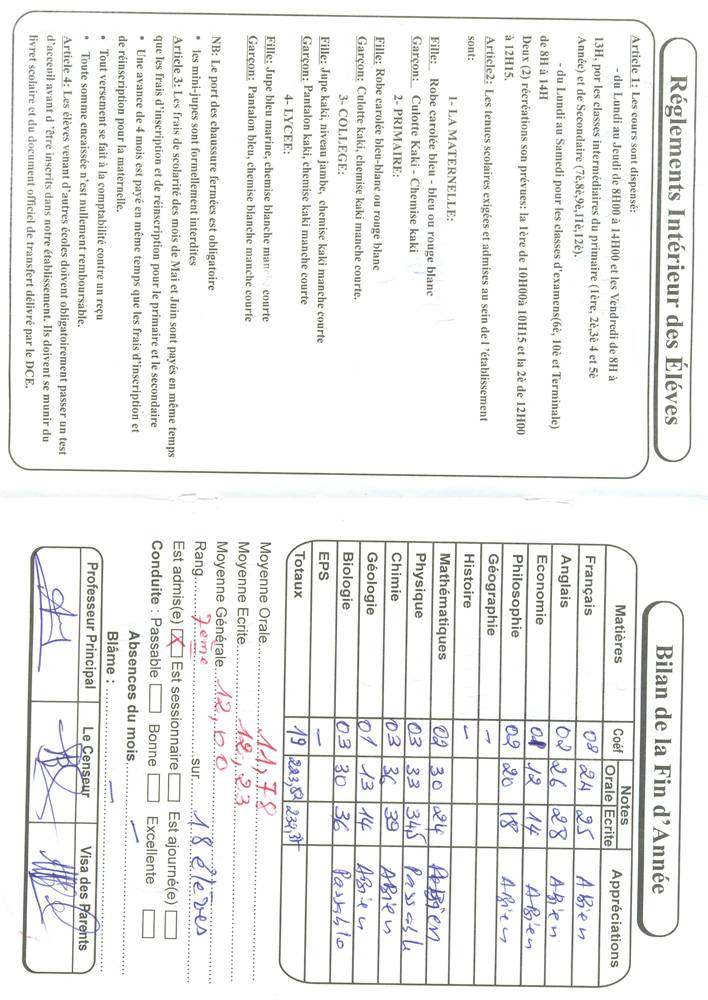 Réglements Intérieur des Éléves
Article 1: Les cours sont dispensé:
- du Lundi au Jeudi de 8H00 à 14H00 et les Vendredi de 8H à
13H, por les classes intermédiaires du primaire (1ère, 2è,3è 4 et 5è
Année) et de Secondaire (7è,8è,9è,11è,12è).
- du Lundi au Samedi pour les classes d'examens(6è, 10è et Terminale)
de 8H à 14H
Deux (2) récréations son prévues: la 1ère de 10H00à 10H15 et la 2è de 12H00
à 12H15.
Article2: Les tenues scolaires exigées et admises au sein de l 'établissement
sont:
1- LA MATERNELLE:
Fille: Robe carolée bleu - bleu ou rouge blanc
Garçon: Culotte Kaki - Chemise kaki
2- PRIMAIRE:
Fille: Robe carolée bleu-blanc ou rouge blanc
Garçon: Culotte kaki, chemise kaki manche courte.
3- COLLEGE:
Fille: Jupe kaki, niveau jambe, chemise kaki manche courte
Garçon: Pantalon kaki, chemise kaki manche courte
4- LYCEE:
Fille: Jupe bleu marine, chemise blanche courte
Garçon: Pantalon bleu, chemise blanche manche courte
NB: Le port des chaussure fermées est obligatoire
• les mini-jupes sont formellement interdites
Article 3: Les frais de scolarité des mois de Mai et Juin sont payés en même temps
que les frais d'inscription et de réinscription pour le primaire et le secondaire
• Une avance de 4 mois est payé en même temps que les frais d'inscription et
de réinscription pour la maternelle.
• Tout versement se fait à la comptabilité contre un reçu
• Toute somme encaissée n'est nullement remboursable.
Article 4: Les éléves venant d'autres écoles doivent obligatoirement passer un test
d'acceuil avant d 'être inscrits dans notre établissement. Ils doivent se munir du
livret scolaire et du document officiel de transfert délivré par le DCE.
Bilan de la Fin d'Année
Matières Coéf Notes Appréciations
Orale Ecrite
Français 08 24 25 ABien
Anglais 02 26 28 ABien
Economie 01 12 14 ABien
Philosophie 02 20 18 ABien
Géographie -
Histoire -
Mathématiques 02 30 24 ABien
Physique 03 33 34,5 Passable
Chimie 03 36 39 ABien
Géologie 01 13 14 ABien
Biologie 03 30 36 Passable
EPS -
Totaux 19
Moyenne Orale 11,78
Moyenne Ecrite 12,23
Moyenne Générale 12,00
Rang 7ème sur 18 élèves
Est admis(e) X Est sessionnaire Est ajourné(e)
Conduite : Passable Bonne Excellente
Absences du mois -
Blâme : -
Professeur Principal Le Censeur Visa des Parents